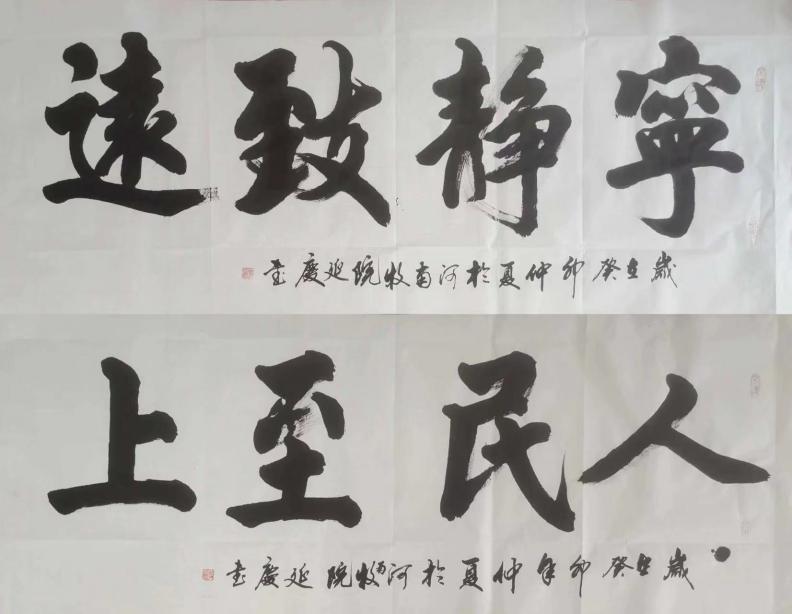 寧靜致遠
歲在癸卯仲夏於河南牧院延慶書
人民至上
歲在癸卯年仲夏於河南牧院延慶書